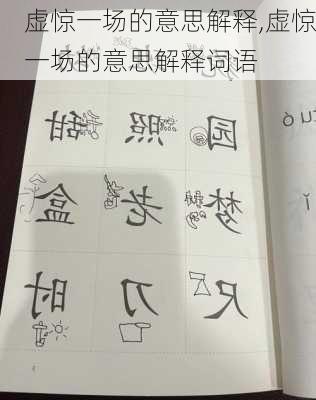 虚惊一场的意思解释,虚惊
一场的意思解释词语
甜 照 园
盒 老 梦
时 刀 尺